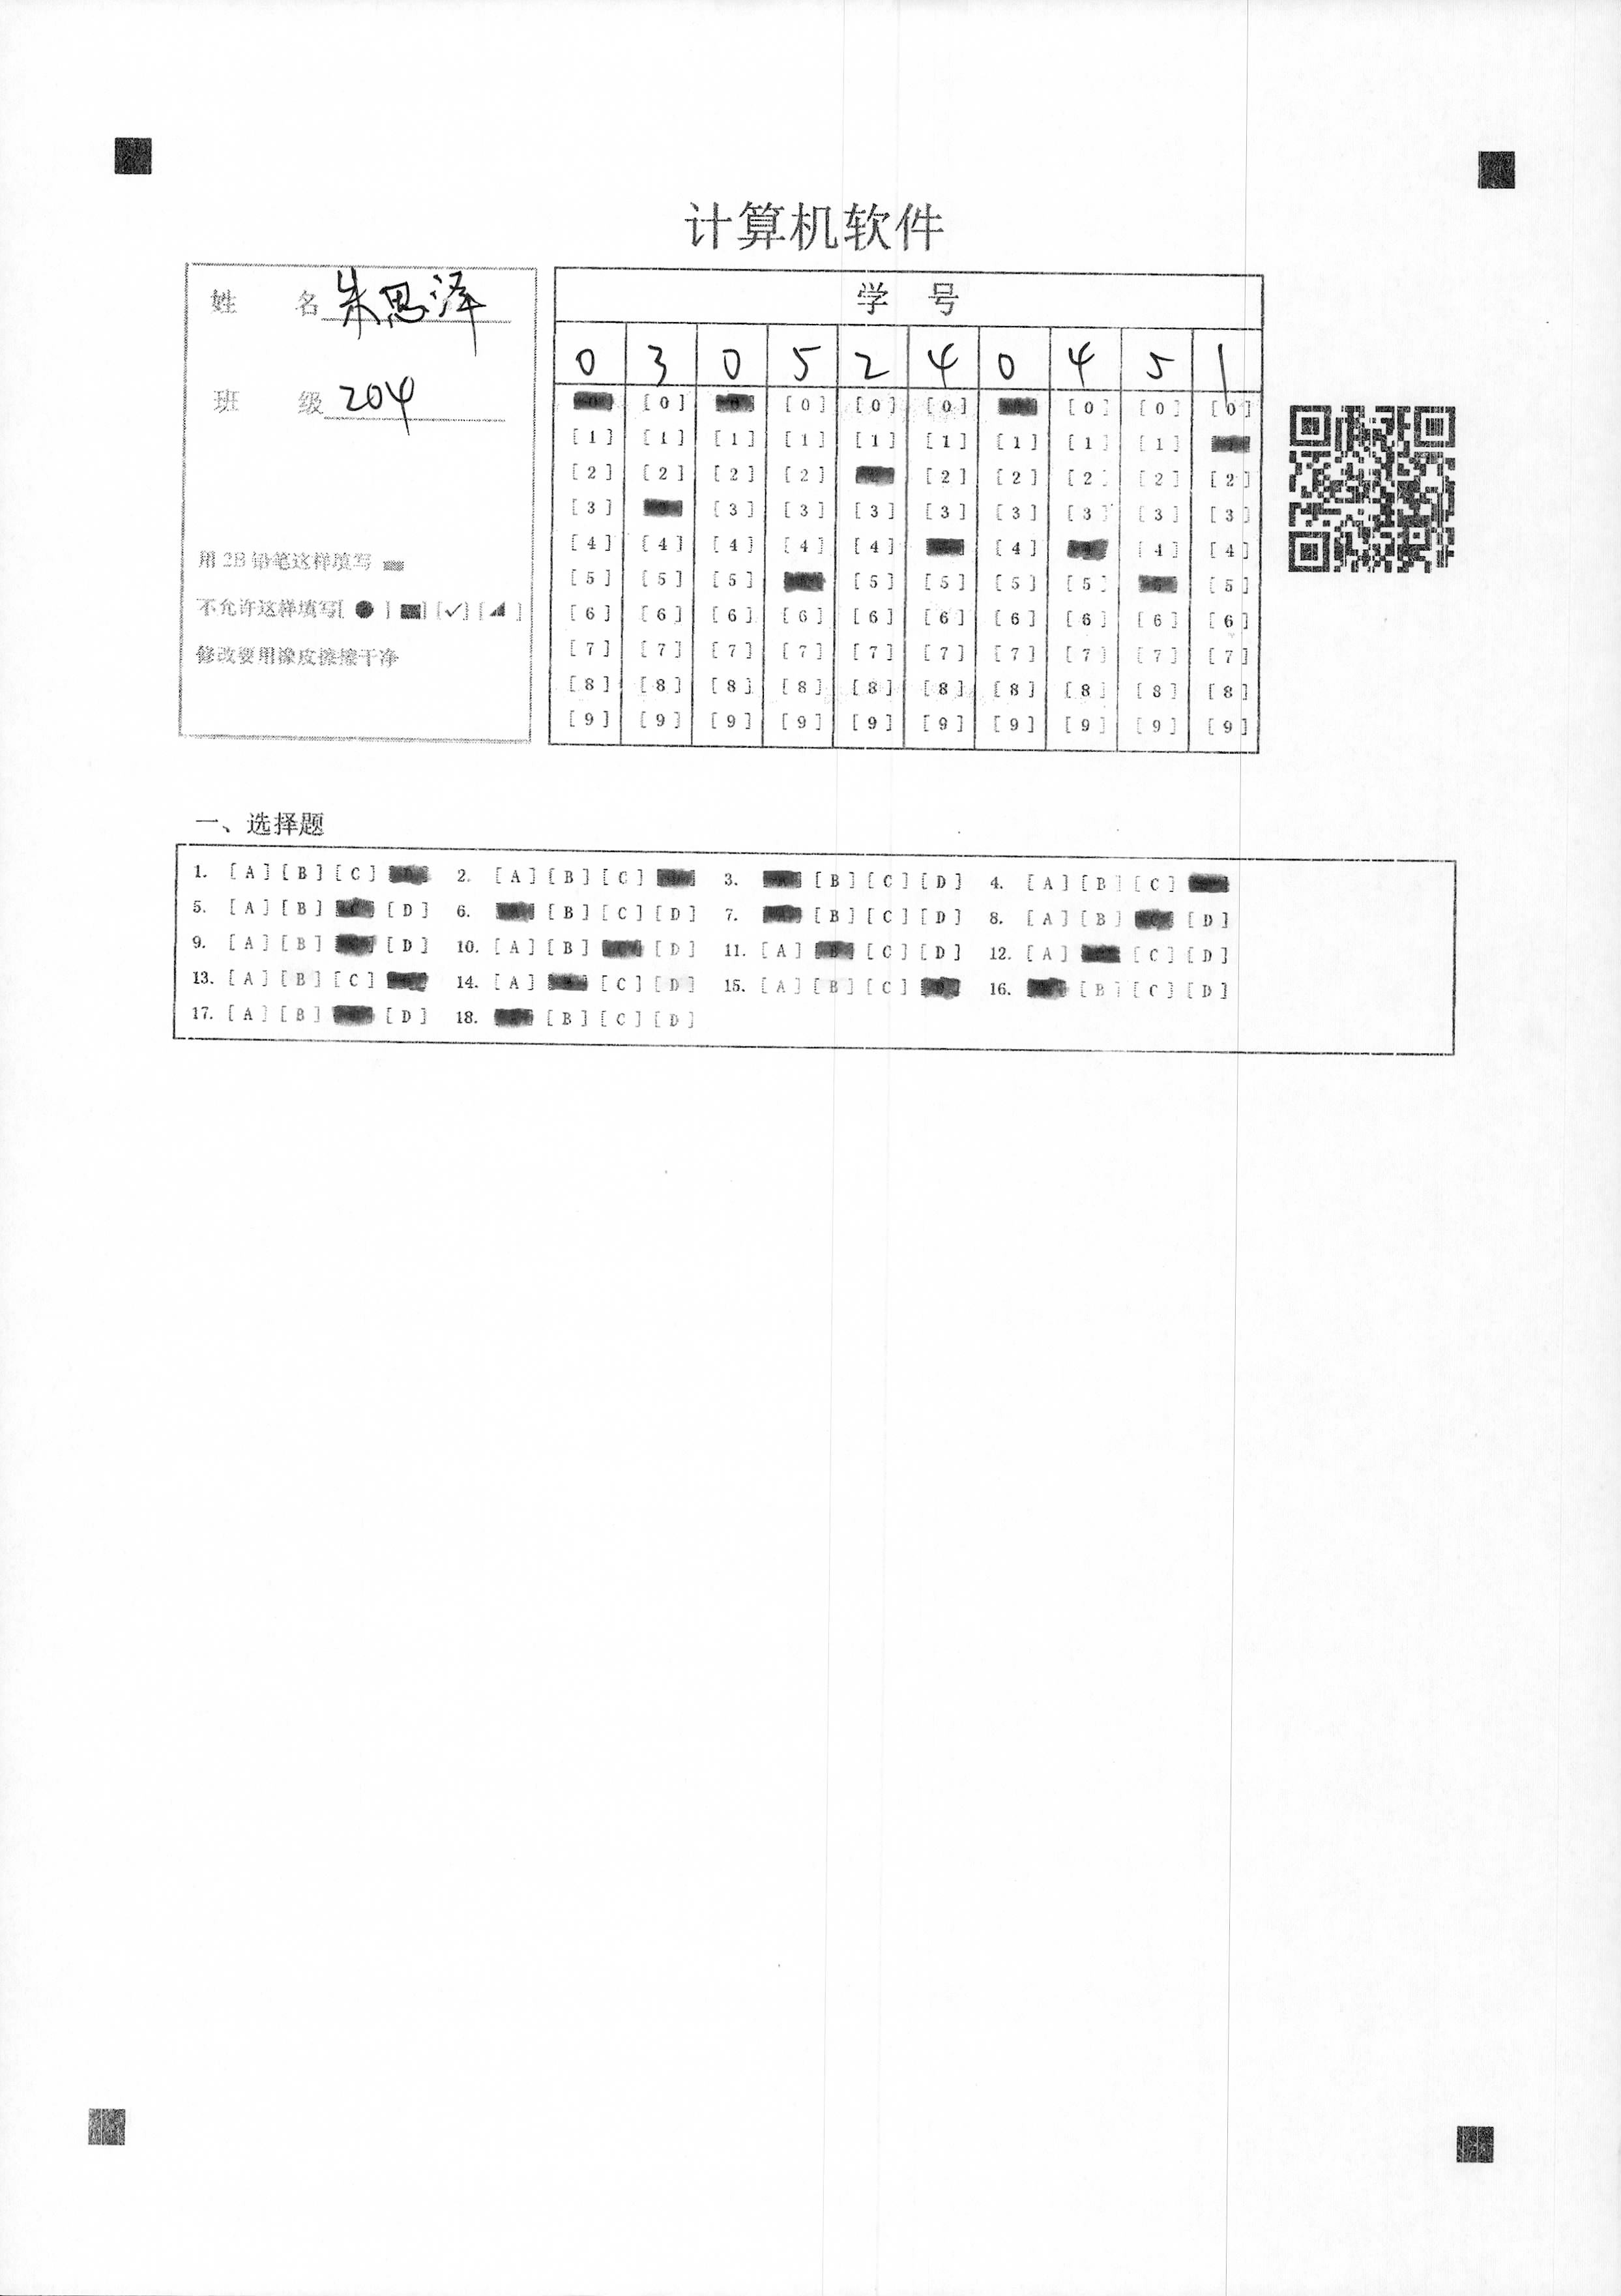 计算机软件
姓 名 朱思泽
班 级 204
用 2B 铅笔这样填写
不允许这样填写[ ● ] [■] [✓] [◢ ]
修改要用橡皮擦擦干净
学 号
0 3 0 5 2 4 0 4 5 1
[0] [0] [0] [0] [0] [0] [0]
[1] [1] [1] [1] [1] [1] [1] [1] [1]
[2] [2] [2] [2] [2] [2] [2] [2] [2]
[3] [3] [3] [3] [3] [3] [3] [3] [3]
[4] [4] [4] [4] [4] [4] [4] [4]
[5] [5] [5] [5] [5] [5] [5] [5]
[6] [6] [6] [6] [6] [6] [6] [6] [6] [6]
[7] [7] [7] [7] [7] [7] [7] [7] [7] [7]
[8] [8] [8] [8] [8] [8] [8] [8] [8] [8]
[9] [9] [9] [9] [9] [9] [9] [9] [9] [9]
一、选择题
1. [A] [B] [C] 2. [A] [B] [C] 3. [B] [C] [D] 4. [A] [B] [C]
5. [A] [B] [D] 6. [B] [C] [D] 7. [B] [C] [D] 8. [A] [B] [D]
9. [A] [B] [D] 10. [A] [B] [D] 11. [A] [C] [D] 12. [A] [C] [D]
13. [A] [B] [C] 14. [A] [C] [D] 15. [A] [B] [C] 16. [B] [C] [D]
17. [A] [B] [D] 18. [B] [C] [D]